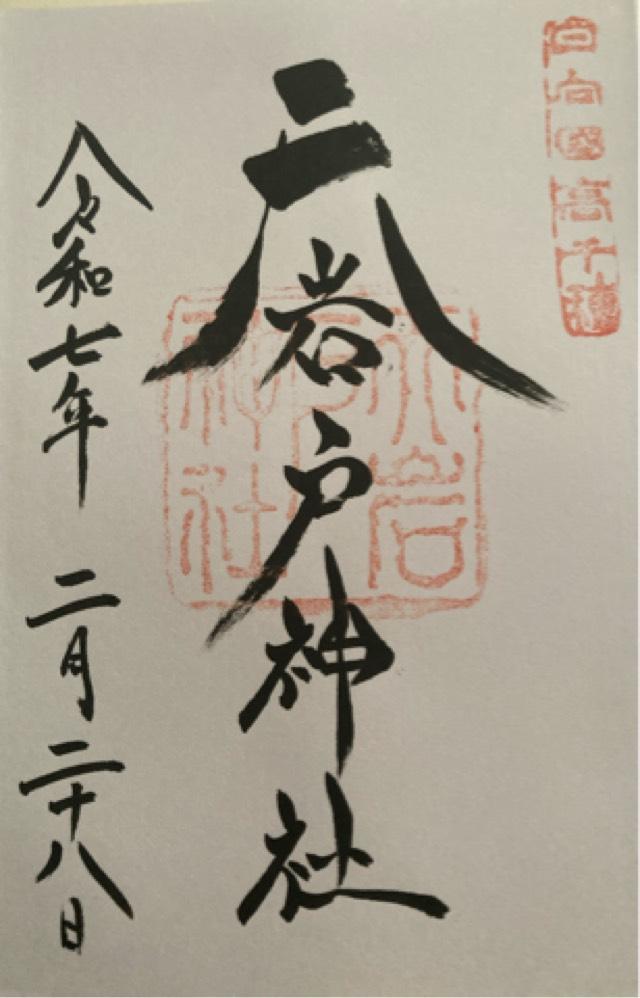 日向國高千穂
天岩戸神社
天岩戸神社
令和七年 二月二十八日